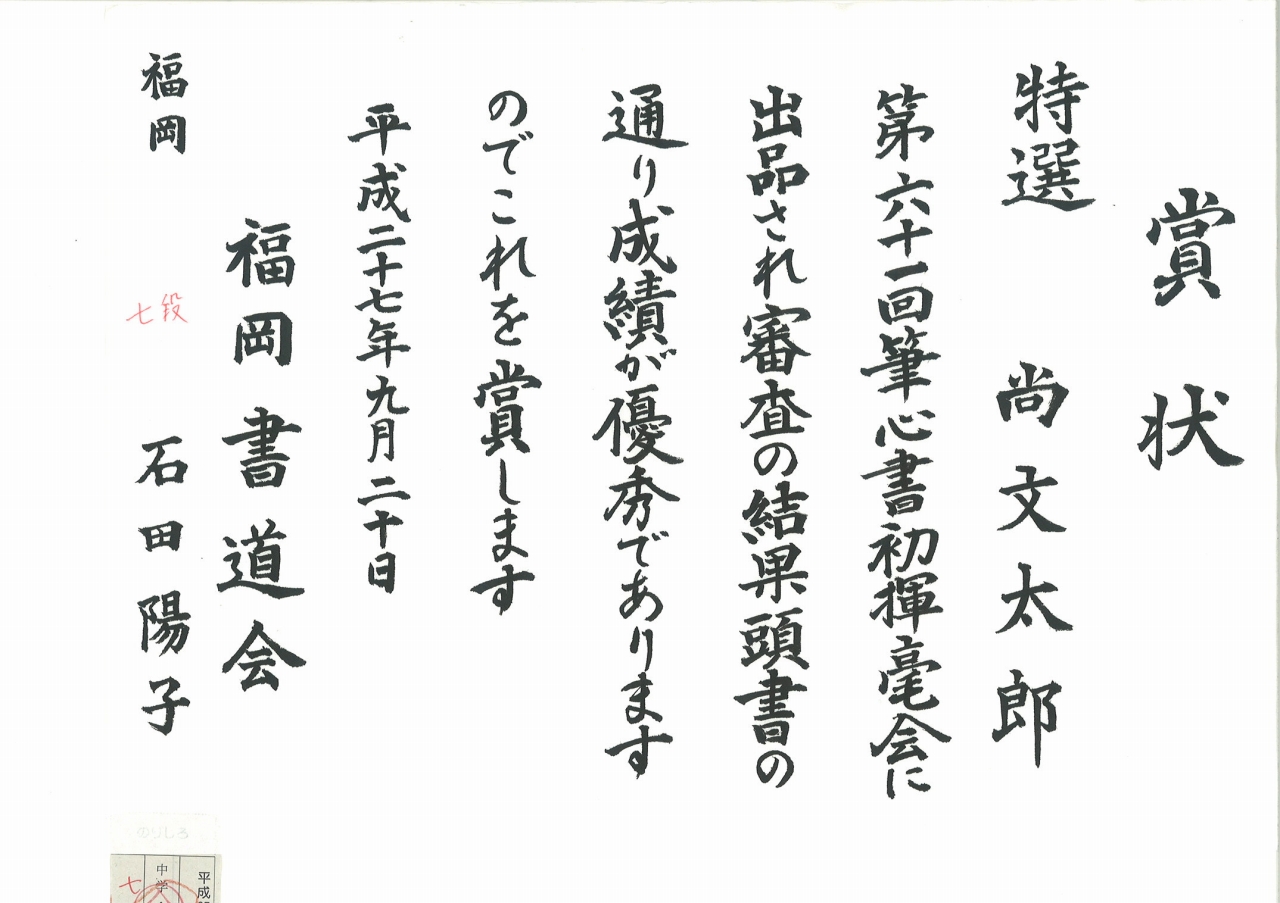 賞状
特選 尚文太郎
第六十一回筆心書初揮毫会に
出品され審査の結果頭書の
通り成績が優秀であります
のでこれを賞します
平成二十七年九月二十日
福岡書道会
福岡 七段 石田陽子
のりしろ
平成
中学
七